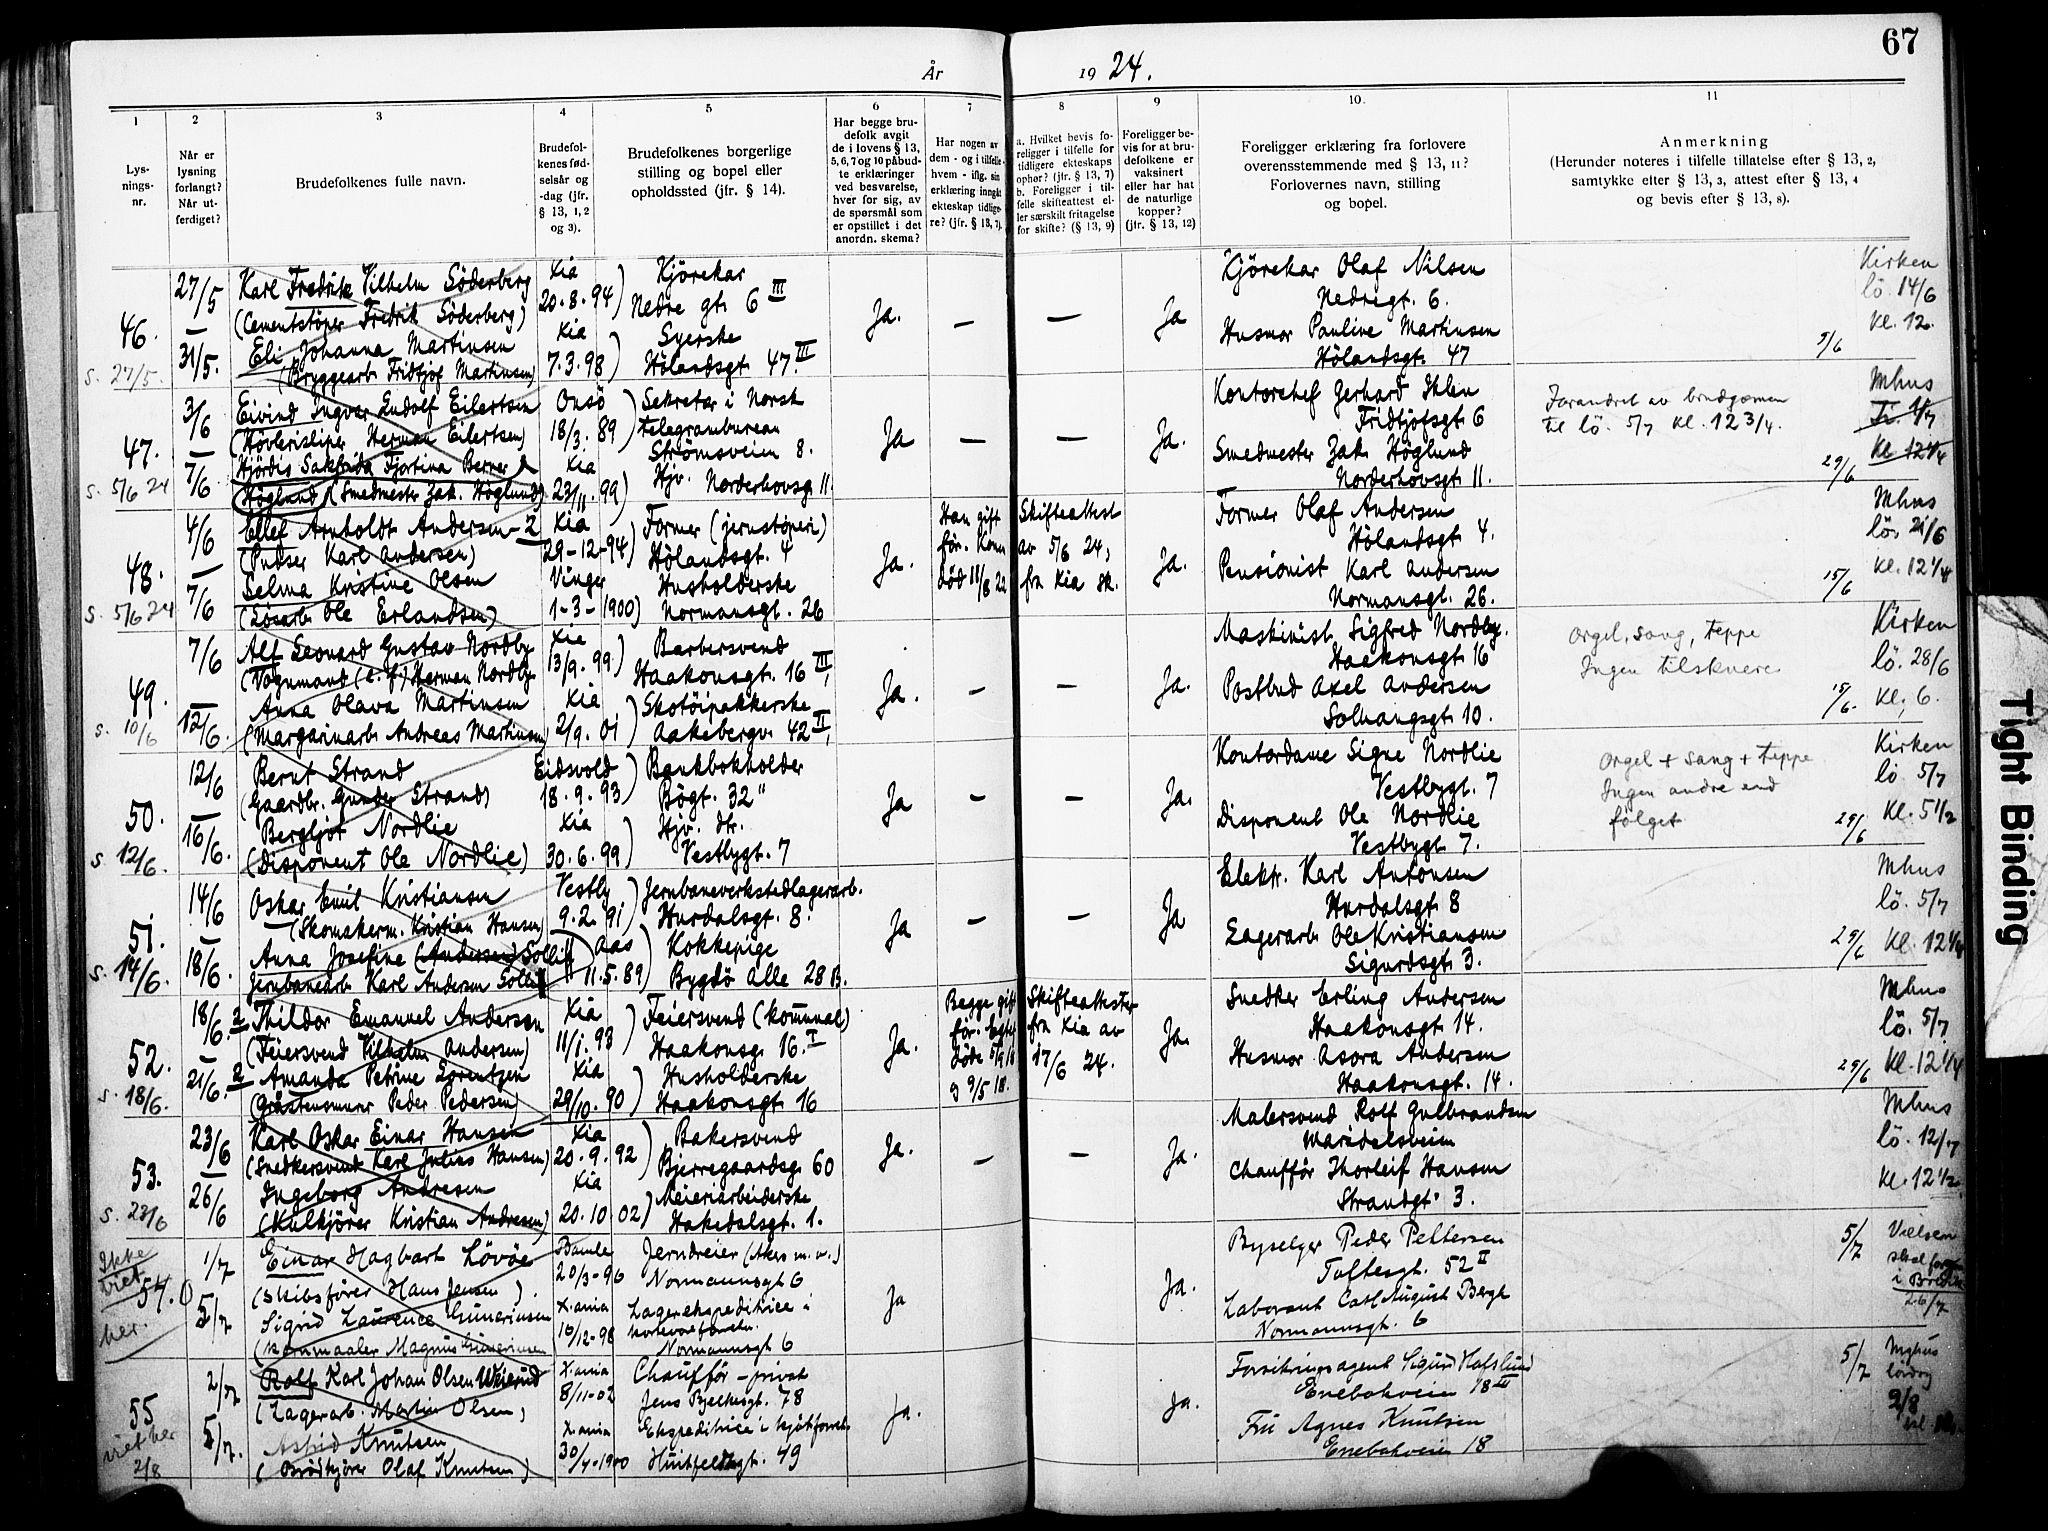 67
År 1924.
1
2
3
4
5
6
7
8
9
10.
11
Lys-
nings-
nr.
Når er
lysning
forlangt?
Når ut-
ferdiget?
Brudefolkenes fulle navn.
Brudefol-
kenes fød-
selsår og
-dag (jfr.
§ 13, 1, 2
og 3).
Brudefolkenes borgerlige
stilling og bopel eller
opholdssted (jfr. § 14).
Har begge bru-
defolk avgit
de i lovens § 13,
5, 6, 7 og 10 påbud-
te erklæringer
ved besvarelse,
hver for sig, av
de spørsmål som
er opstillet i det
anordn. skema?
Har nogen av
dem - og i tilfelle
hvem - iflg. sin
erklæring inngått
ekteskap tidlige-
re? (jfr. § 13, 7).
a. Hvilket bevis fo-
religger i tilfelle for
tidligere ekteskaps
ophør? (jfr. § 13, 7)
b. Foreligger i til-
felle skifteattest el-
ler særskilt fritagelse
for skifte? (§ 13, 9)
Foreligger be-
vis for at bru-
defolkene er
vaksinert
eller har hat
de naturlige
kopper?
(jfr. § 13, 12)
Foreligger erklæring fra forlovere
overensstemmende med § 13, 11?
Forlovernes navn, stilling
og bopel.
Anmerkning
(Herunder noteres i tilfelle tillatelse efter § 13, 2,
samtykke efter § 13, 3, attest efter § 13, 4
og bevis efter § 13, 8).
46.
s. 27/5.
27/5
31/5.
Karl Fredrik Vilhelm Söderberg
(Cementstöper Fredrik Söderberg)
Eli Johanna Martinsen
(Bryggearb. Fridtjof Martinsen)
Kia
20.8.94)
Kia
7.3.98)
Kjörekar
Nedre gt. 6 III
Syerske
Hölandsgt. 47 III
Ja.
—
—
Ja
Kjörekar Olaf Nilsen
Nedregt. 6.
Husmor Pauline Martinsen
Hölandsgt. 47
5/6
Kirken
lö. 14/6
kl. 12.
47.
s. 5/6 24
3/6
7/6
Eivind Ingvar Ludolf Eilertsen
(Hövlerisliper Herman Eilertsen)
Hjördis Sakfrida Fjortina Berner
Höglund (Smedmester Zak. Höglund)
Onsö
18/3. 89
Kia
23/11. 99)
Sekretær i Norsk
telegrambureau
Strömsveien 8.
Hjv. Norderhovsg. 11
Ja
—
—
Ja.
Kontorchef Gerhard Iklen
Fridtjofsgt 6
Smedmester Zak. Höglund
Norderhovsgt. 11.
Forandret av brudgommen
til lö. 5/7 kl. 12 3/4.
29/6
Mhus
Ti. 1/7
kl. 12 1/4
48.
s. 5/6 24
4/6
7/6
Ellef Arnholdt Andersen - 2
(Pudser Karl Andersen)
Selma Kristine Olsen
(Lösarb. Ole Erlandsen)
Kia
29-12-94)
Vinger
1-3-1900)
Former (jernstöperi)
Hölandsgt. 4
Husholderske
Normansgt. 26
Ja.
Han gift
för. Konen
död 11/8 22
Skifteattest
av 5/6 24,
fra Kia sk.
Ja.
Former Olaf Andersen
Hölandsgt. 4.
Pensionist Karl Andersen
Normansgt. 26.
15/6
Mhus
lö. 21/6
kl. 12 1/4
49.
s. 10/6
7/6
12/6.
Alf Leonard Gustav Nordby
(Vognmand (e. f.) Herman Nordby
Anna Olava Martinsen
(Margarinarb. Andreas Martinsen)
Kia
13/9. 99)
Kia
2/9. 01)
Barbersvend
Haakonsgt. 16 III,
Skotöipakkerske
Aakebergv. 42 II,
Ja.
—
—
Ja.
Maskinist Sigfred Nordby.
Haakonsgt 16
Postbud Axel Andersen
Solhaugsgt. 10.
Orgel, sang, teppe
Ingen tilskuere.
15/6.
Kirken
lö. 28/6
kl. 6.
50.
s. 12/6.
12/6
16/6.
Bernt Strand
(Gaardbr. Gunder Strand)
Bergljot Nordlie
(Disponent Ole Nordlie)
Eidsvold
18.9.93)
Kia
30.6.99)
Bankbokholder
Bögt. 32"
Hjv. dtr.
Vestbygt. 7
Ja
—
—
Ja.
Kontordame Signe Nordlie
Vestbygt. 7
Disponent Ole Nordlie
Vestbygt 7.
Orgel + sang + teppe
Ingen andre end
fölget
29/6
Kirken
lö 5/7
kl. 5 1/2
51.
s. 14/6.
14/6
18/6.
Oskar Emil Kristiansen
(Skomakerm. Kristian Hansen)
Anna Josefine (Andersen) Sollie
Jernbanearb. Karl Andersen Sollie
Vestby
9.2.91)
Aas
11.5.89)
Jernbaneverkstedlagerarb.
Hurdalsgt. 8.
Kokkepige
Bygdö Alle 28 B.
Ja
—
—
Ja
Elektr. Karl Antonsen
Hurdalsgt 8
Lagerarb. Ole Kristiansen
Sigurdsgt. 3.
29/6
Mhus
lö. 5/7
kl. 12 1/4
52.
s. 18/6.
18/6. 2
21/6. 2
Thildor Emanuel Andersen
(Feiersvend Vilhelm Andersen)
Amanda Petrine Lorentzen
(Gråstensmurer Peder Pedersen)
Kia
11/1. 93)
Kia
29/10. 90)
Feiersvend (kommunal)
Haakonsg. 16. I
Husholderske
Haakonsgt. 16
Ja.
Begge gift
för.
Skifteattester
fra Kia av
17/6 24.
Ja.
Snedker Erling Andersen
Haakonsgt. 14.
Husmor Asora Andersen
Haakonsgt. 14.
29/6
Mhus
lö. 5/7
kl. 12 1/4
53.
s. 23/6
23/6
26/6
Karl Oskar Einar Hansen
(Snedkersvend Karl Julius Hansen)
Ingeborg Andresen
(Kulkjörer Kristian Andresen)
Kia
20.9.92)
Kia
20.10.02)
Bakersvend
Bjerregaardsg. 60
Meieriarbeiderske
Hakedalsgt. 1.
Ja.
—
—
Ja.
Malersvend Rolf Gulbrandsen
Maridalsveien
Chaufför Thorleif Hansen
Strandgt. 3.
Mhus
lö. 12/7
kl. 12 1/2
Ikke
viet
54.
her.
1/7
5/7
Einar Hagbart Lövöe
(Skibsförer Hans Jensen).
Sigrid Laurence Gunerinsen
(Kornmaaler Magnus Gunerinsen
Bamle
20/3-96
X.ania
10/12-98
Jerndreier (Akers m.v.)
Normannsgt 6
Lagerekspeditrice i
Normannsgt 6
Ja
Ja.
Byselger Peder Pettersen
Toftesgt. 52 II
Laborant Carl August Bergh
Normannsgt. 6
5/7
Vielsen
skal foregå
i Brevik
26/7
55
viet her
2/8
2/7
5/7.
Rolf Karl Johan Olsen
(Lagerarb. Martin Olsen)
Astrid Knutsen
(Brödkjörer Olaf Knutsen)
X.ania
8/11-02
X.ania
30/4-1900
Chaufför - privat
Jens Bjelkesgt. 78
Ekspeditrice i kjötforretn.
Huitfeldtsgt. 49
Ja.
Ja.
Forsikringsagent Sigurd Hafslund
Enebakveien 18 III
Fru Agnes Knutsen
Enebakveien 18
5/7
Mghus
lördag
2/8
Tight Binding